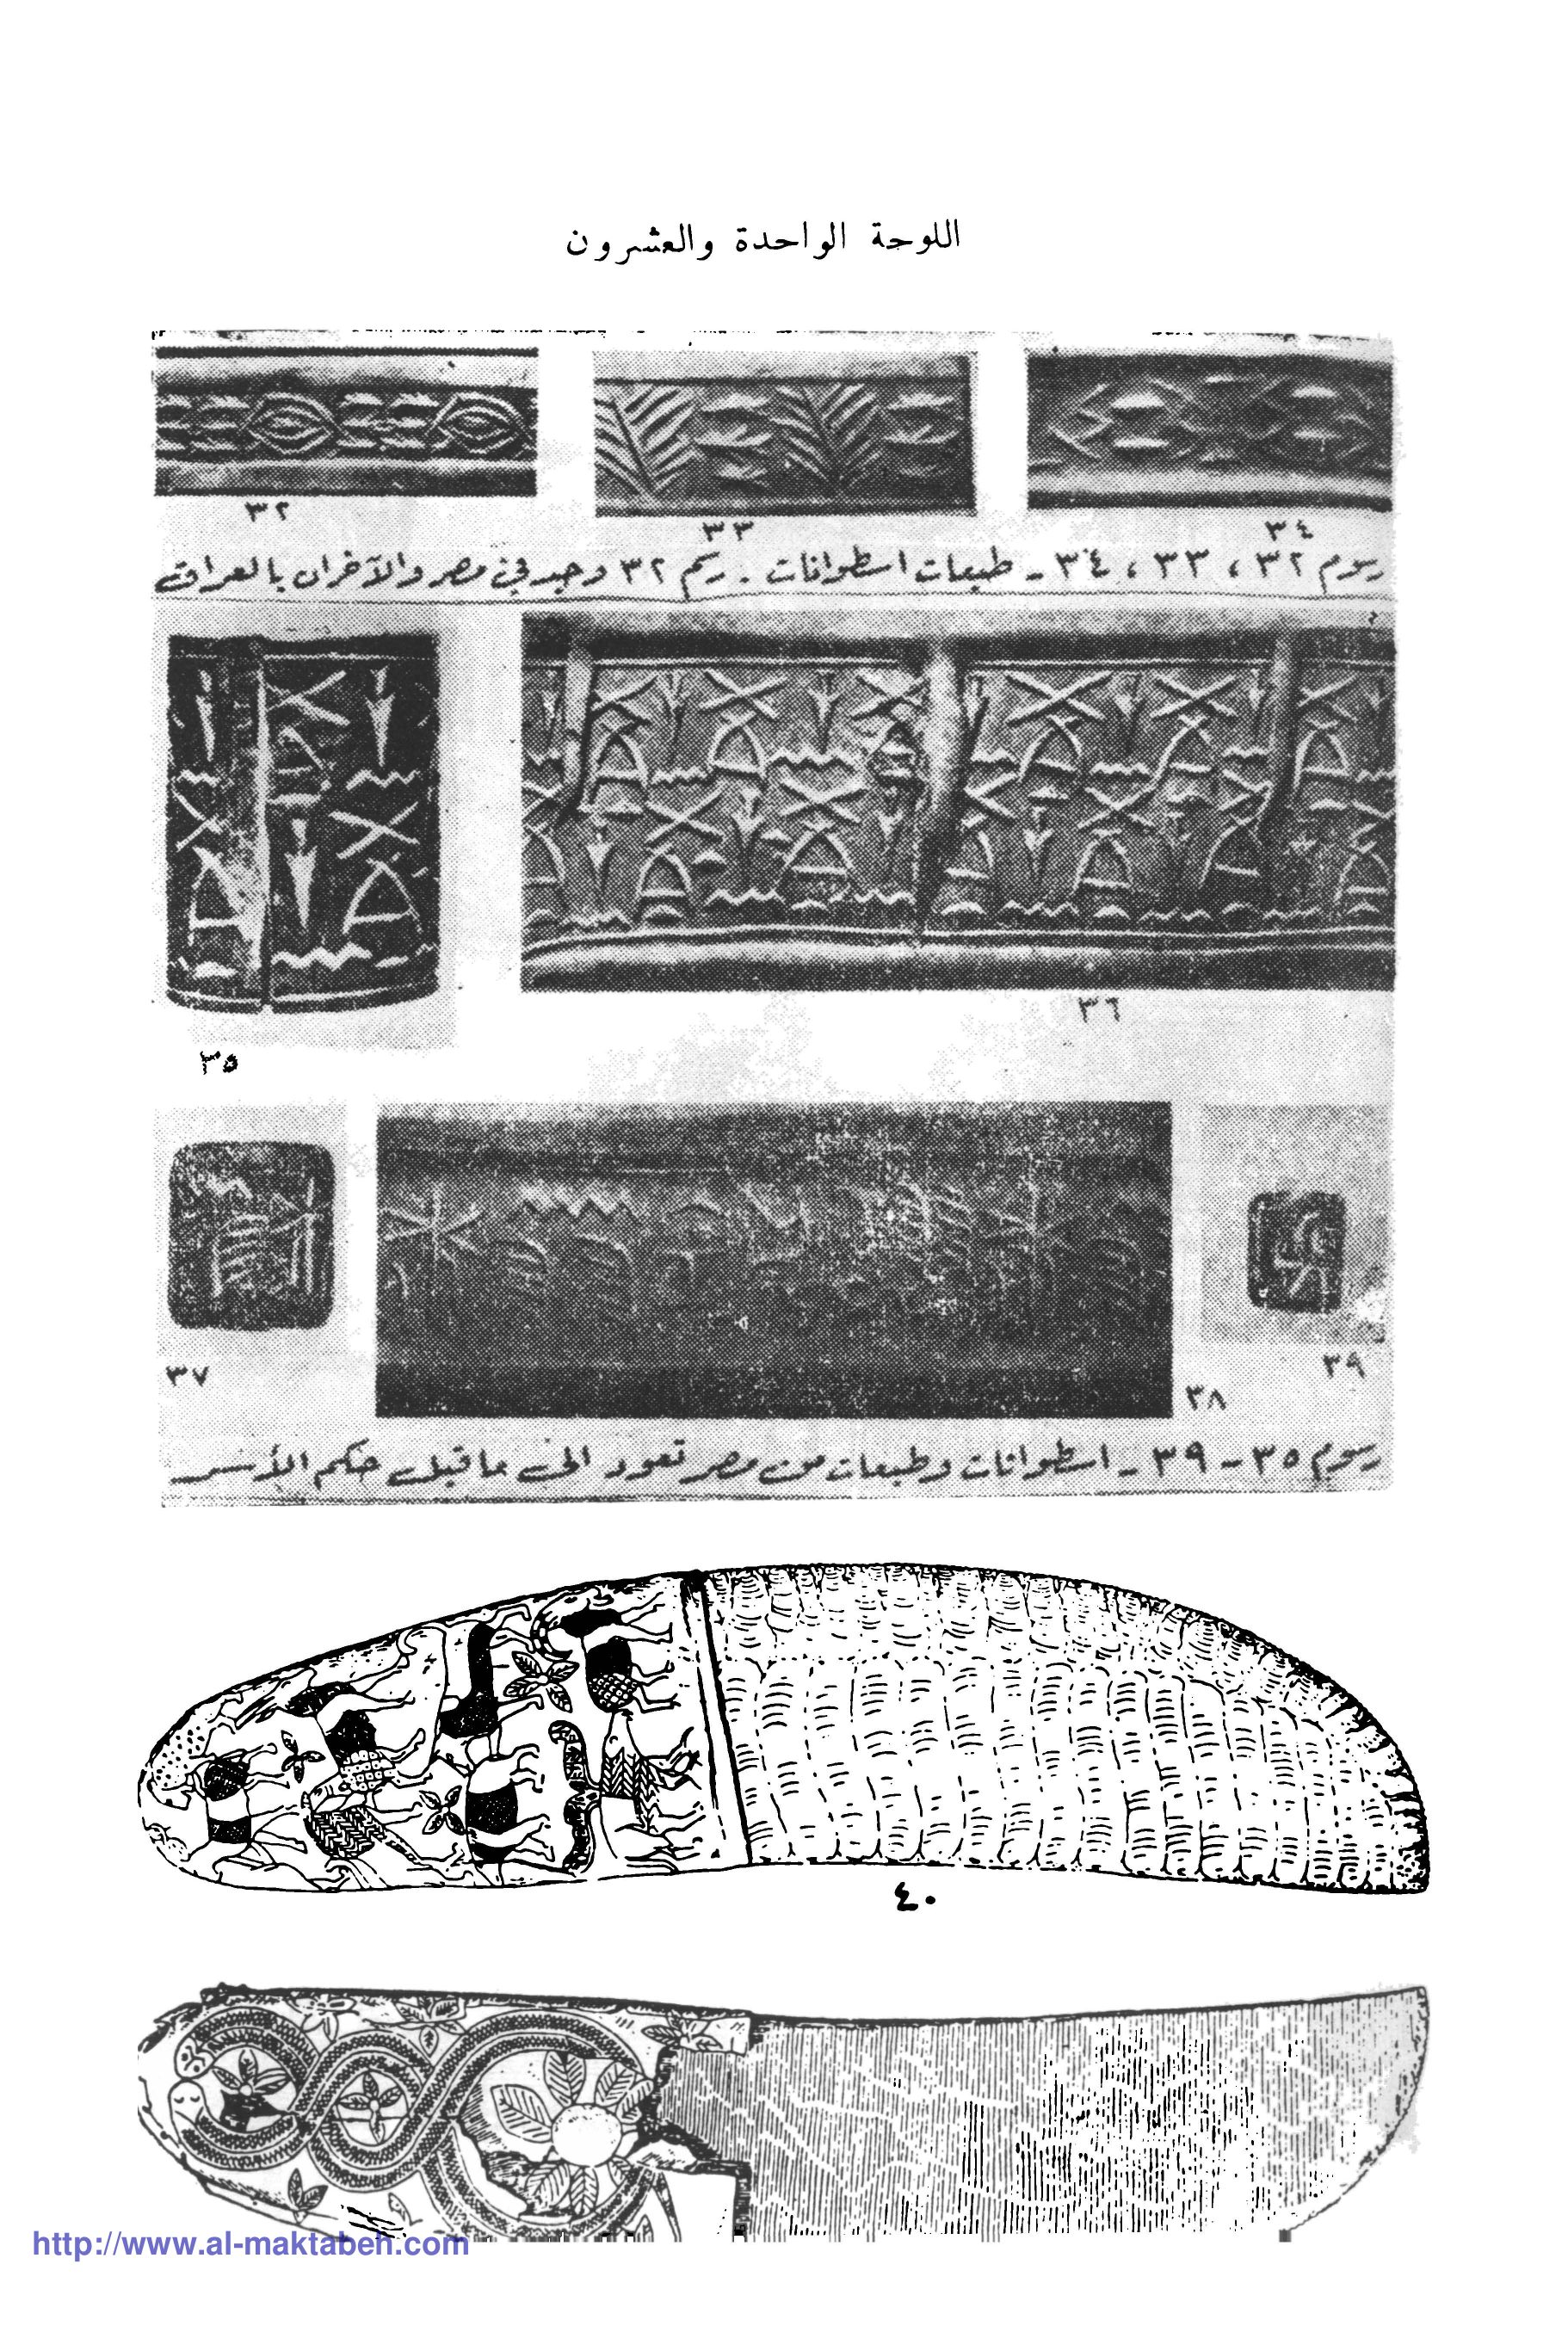 اللوحة الواحدة والعشرون
٣٢
٣٣
٣٤
رسوم ٣٢ ، ٣٣ ، ٣٤ ـ طبعات اسطوانات . رسم ٣٢ وجد في مصر والآخران بالعراق
٣٥
٣٦
٣٧
٣٨
٣٩
رسوم ٣٥ ـ ٣٩ ـ اسطوانات وطبعات من مصر تعود الى ما قبل حكم الأسر
٤٠
http://www.al-maktabeh.com